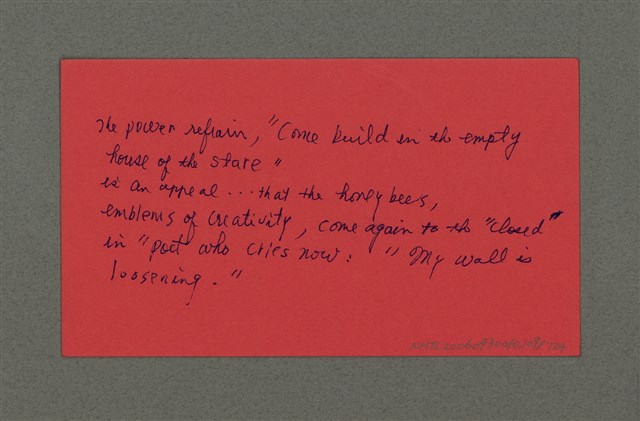 The power refrain, "Come build in the empty
house of the stare"
is an appeal... that the honey bees,
emblems of creativity, come again to the "closed"
in "poet who cries now: "My wall is
loosening."